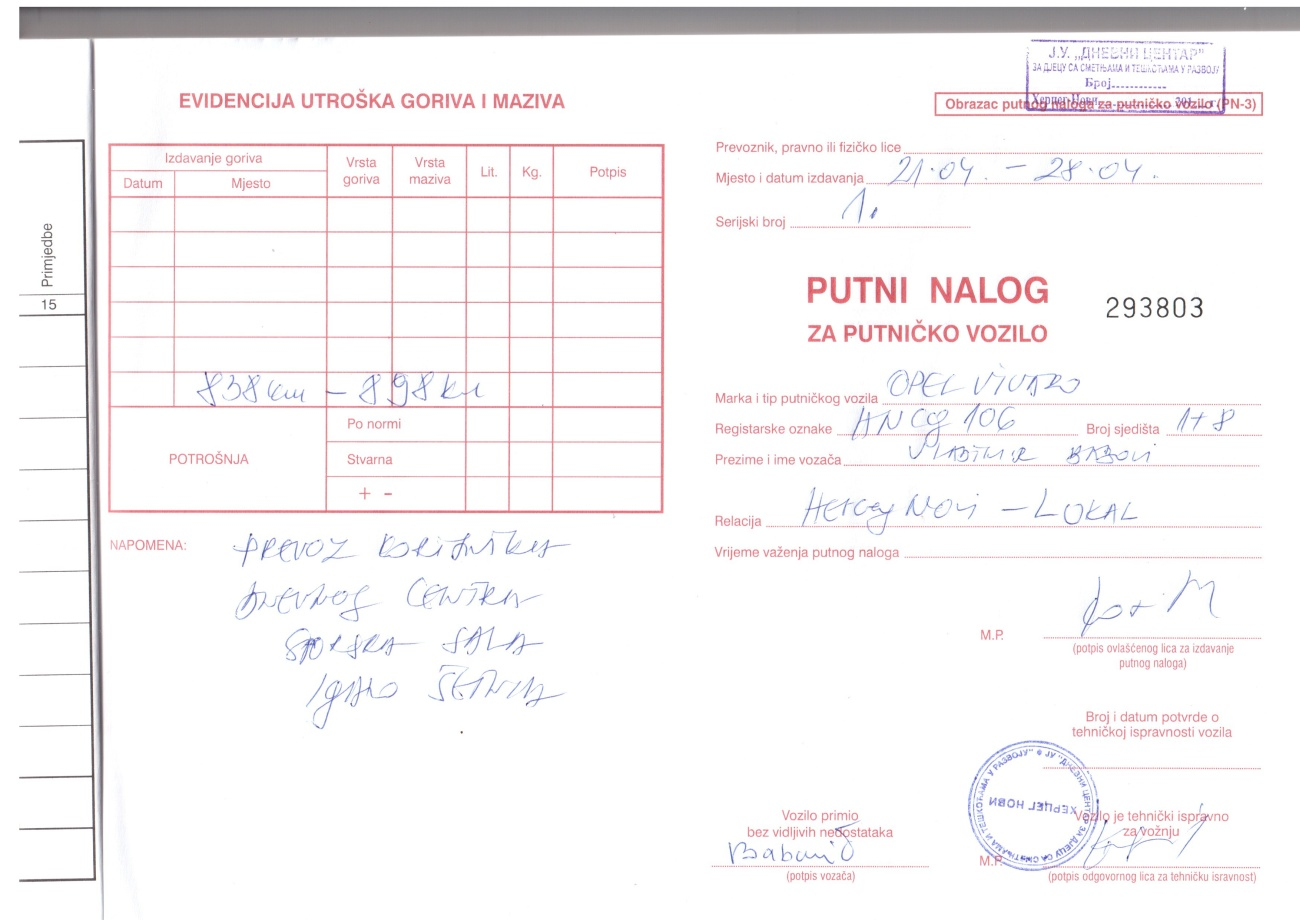 Primjedbe
15
EVIDENCIJA UTROŠKA GORIVA I MAZIVA
Izdavanje goriva
Datum
Mjesto
Vrsta goriva
Vrsta maziva
Lit.
Kg.
Potpis
838 km - 898 km
POTROŠNJA
Po normi
Stvarna
+ -
NAPOMENA:
PREVOZ KORISNIKA
DNEVNOG CENTRA
SPORSKA SALA
IGALO ŠETNJA
Ј.У. „ДНЕВНИ ЦЕНТАР"
ЗА ДЈЕЦУ СА СМЕТЊАМА И ТЕШКОЋАМА У РАЗВОЈУ
Број
Херцег-Нови 201 г
Obrazac putnog naloga za putničko vozilo (PN-3)
Prevoznik, pravno ili fizičko lice
Mjesto i datum izdavanja 21.04. - 28.04.
Serijski broj 1.
PUTNI NALOG
293803
ZA PUTNIČKO VOZILO
Marka i tip putničkog vozila OPEL VIVARO
Registarske oznake HN CG 106 Broj sjedišta 1+8
Prezime i ime vozača VLADIMIR
Relacija Herceg Novi - LOKAL
Vrijeme važenja putnog naloga
M.P.
(potpis ovlašćenog lica za izdavanje
putnog naloga)
Broj i datum potvrde o
tehničkoj ispravnosti vozila
ЈУ "ДНЕВНИ ЦЕНТАР ЗА ДЈЕЦУ СА СМЕТЊАМА И ТЕШКОЋАМА У РАЗВОЈУ"
ХЕРЦЕГ НОВИ
Vozilo primio
bez vidljivih nedostataka
(potpis vozača)
Vozilo je tehnički ispravno
za vožnju
M.P.
(potpis odgovornog lica za tehničku isravnost)